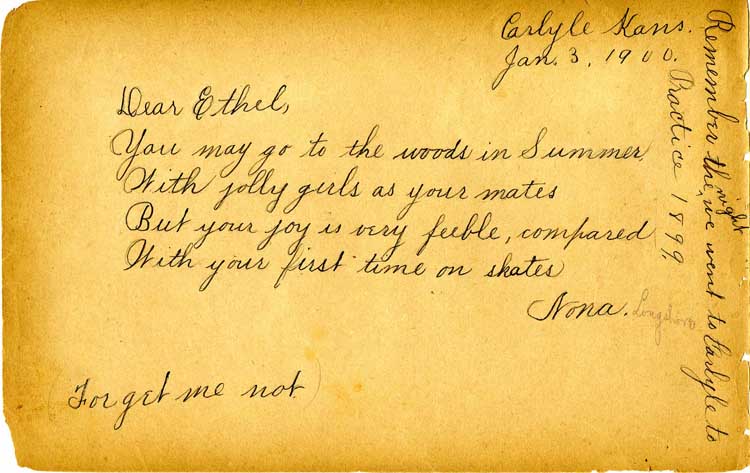 Carlyle Kans.
Jan. 3, 1900.
Dear Ethel,
You may go to the woods in Summer
With jolly girls as your mates
But your joy is very feeble, compared
With your first time on skates
Nona. Longshore
(Forget me not)
Remember the night we went to Carlyle to
Practice 1899.